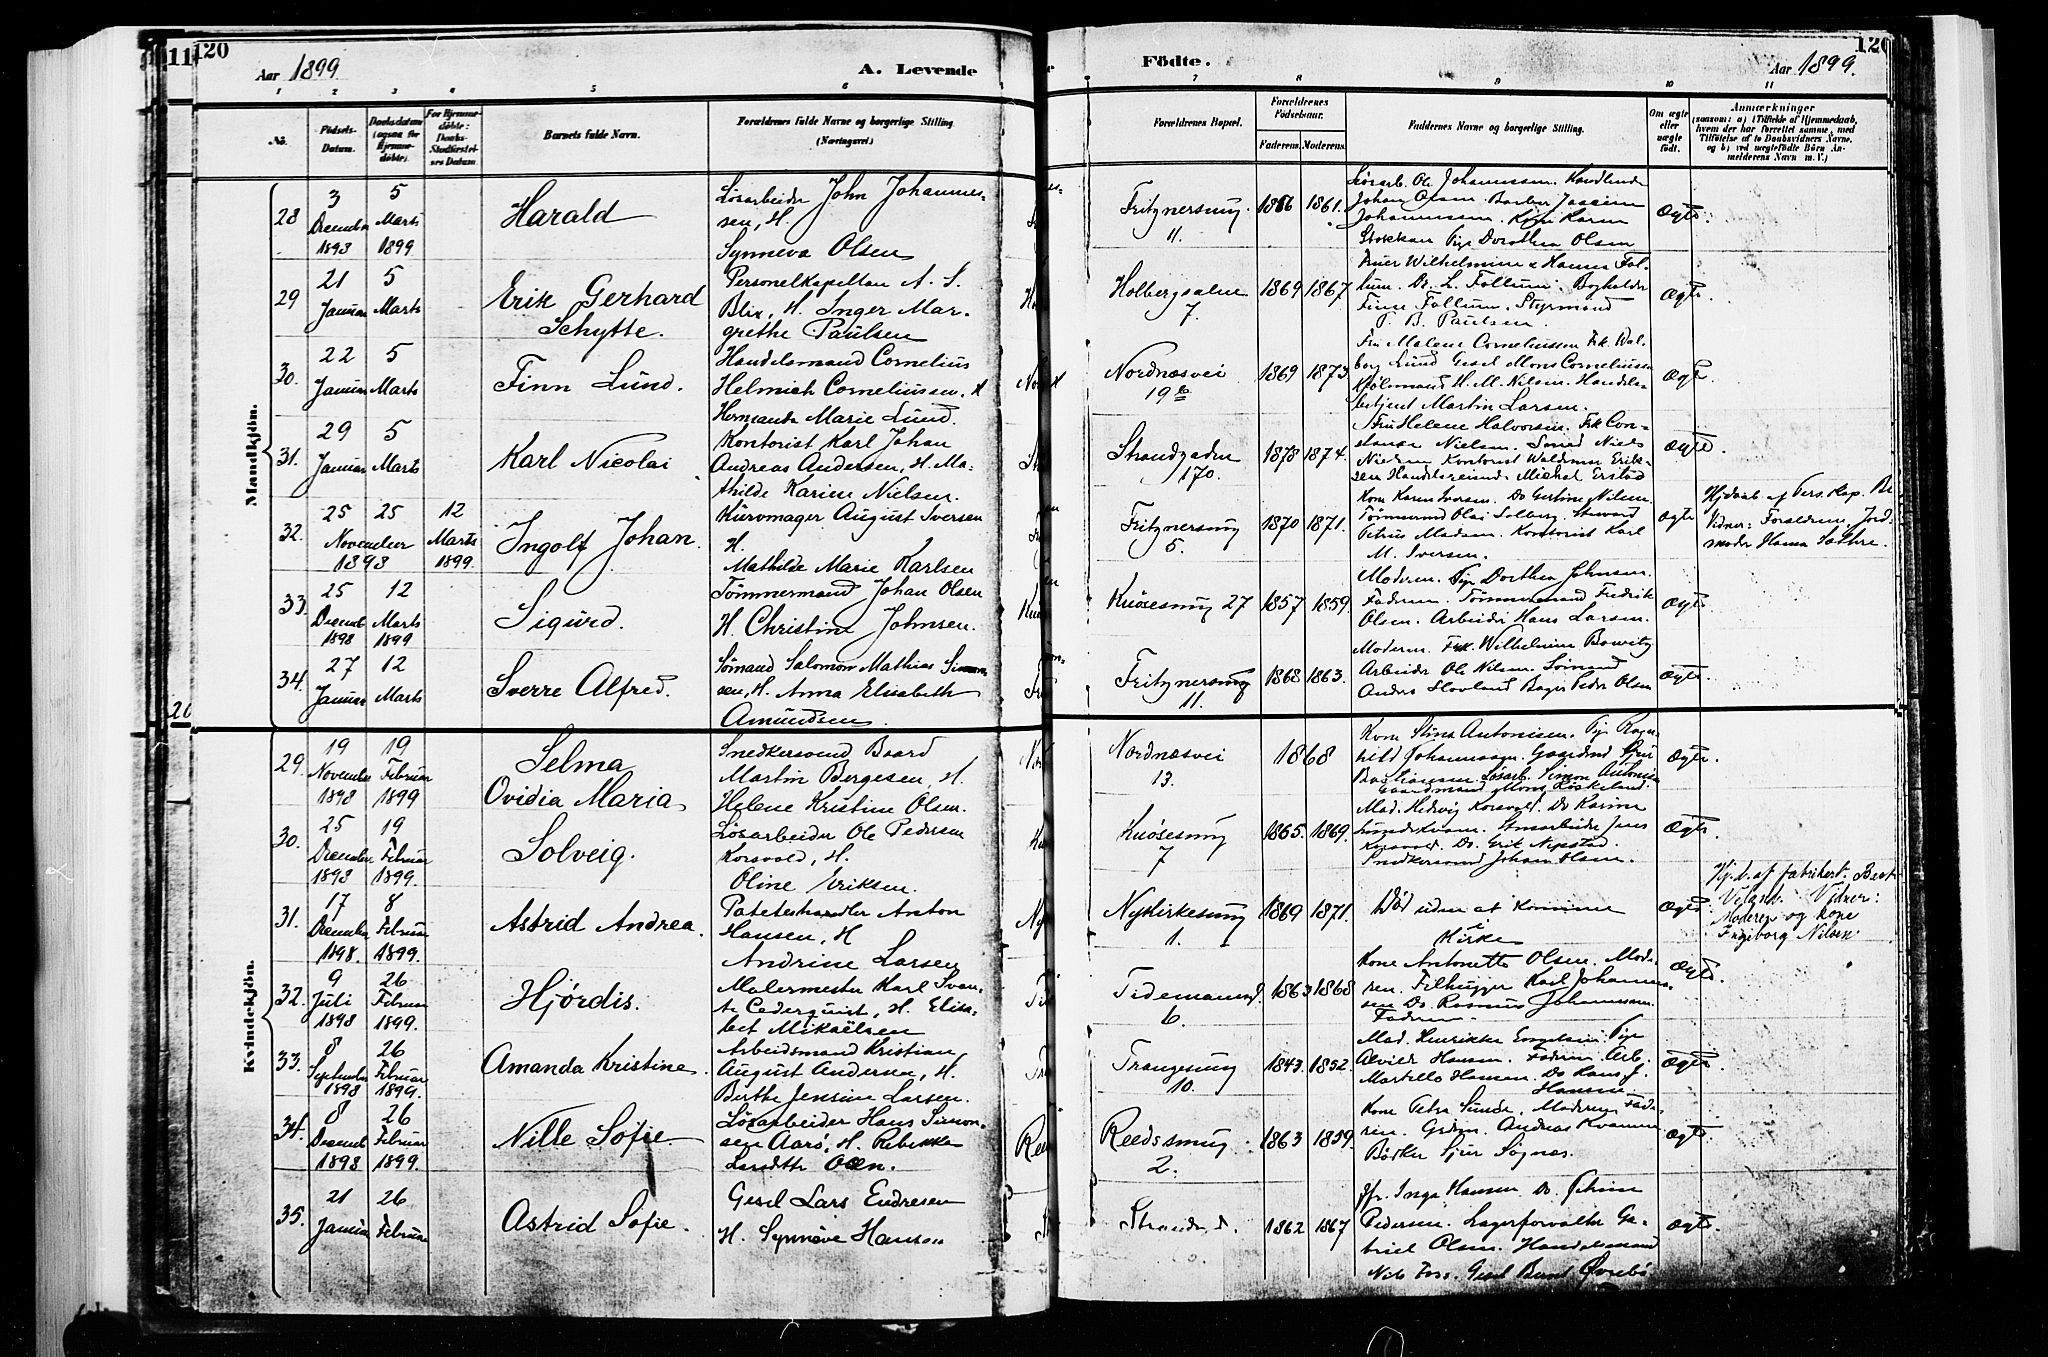 11 120
Aar 1899.
A. Levende
Födte.
Aar 1899.
120
1 2 3 4 5 6
7 8 9 10 11
No.
Födsels-
Datum.
Daabsdatum
(ogsaa for
Hjemme-
döbte).
For Hjemme-
döbte:
Daabs-
Stadfæstel-
ses Datum.
Barnets fulde Navn.
Forældrenes fulde Navne og borgerlige Stilling.
(Næringsvei)
Forældrenes Bopæl.
Forældrenes
Födselsaar.
Faderens. Moderens.
Faddernes Navne og borgerlige Stilling.
Om ægte
eller
uægte
født.
Anmærkninger
(saasom: a) i Tilfælde af Hjemmedaab,
hvem der har forrettet samme, med
Tilföielse af to Daabsvidners Navne.
og b) ved uægtefödte Börn An-
melderens Navn m. V.)
Mandkjön.
28
3
December
1898
5
Marts
1899
Harald
Løsarbeider John Johannes-
sen, H.
Synneva Olsen
Fritznersmug.
11.
1866 1861.
Løsarb. Ole Johannessen. Handlende
Johan Olsen. Barber Joacim
Johannessen. Karen
Stokkan Pige Dorothea Olsen
Ægte.
29
21
Januar
5
Marts
Erik Gerhard
Schytte.
Personelkapellan A. S.
Blix, H. Inger Mar-
grethe Paulsen
Holbergsalm
7.
1869 1867
Fruer Wilhelmine & Hanna Fol-
lum. Dr. L. Follum. Bogholder
Finn Follum, Styrmand
T. B. Paulsen.
Ægte.
30.
22
Januar
5
Marts
Finn Lund.
Handelsmand Cornelius
Helmich Corneliussen, H
Hermanda Marie Lund.
Nordnæsvei
19 b
1869 1873
Fru Malene Corneliussen Frk. Val-
borg Lund Gesel Mons Corneliussen
H. M. Nilsen. Handels-
betjent Martin Larsen.
Ægte.
31.
29
Januar
5
Marts
Karl Nicolai
Kontorist Karl Johan
Andreas Andersen, H. Ma-
thilde Karine Nielsen.
Strandgaden
170.
1878 1874.
Fru Helene Halvorsen. Frk Con-
stanse Nielsen. Smed Niels
Nielsen Kontorist Waldemar Erik-
sen Handelsreisende Michal Erstad
Ægte.
32.
25
November
1898
25
12
Marts
1899
Ingolf Johan.
Kurvmager August Iversen
H.
Mathilde Marie Karlsen
Fritznersmug
5.
1870 1871.
Kone Karen Iversen. Do Gertine Nilsen.
Tømmermd Olai Solberg. Steward
Petrus Madsen. Kontorist Karl
M. Iversen.
Ægte
Hjdaab af Pers. Kap. Bl.
Vidner: Forældrene, Jord-
moder Hanna Sæthre.
33.
25
Decemb
1898
12
Marts
1899
Sigurd.
Tømmermand Johan Olsen
H. Christine Johnsen.
Knøsesmug 27
1857 1859.
Moderen. Pige Dorthea Johnsen.
Faderen. Tømmermand Fredrik
Olsen. Arbeider Hans Larsen.
Ægte
34.
27
Januar
12
Marts
Sverre Alfred.
Sømand Salomon Mathias Simon-
sen, H. Anna Elisabeth
Amundsen.
Fritznersmug
11.
1868 1863.
Moderen. Frk. Wilhelmine
Arbeider Ole Nilsen. Sømand
Anders Hovland Bager Peder Olsen
Ægte.
Kvindekjön.
29.
19
November
1898
19
Februar
1899
Selma
Ovidia Maria
Snedkersvend Baard
Martin Bergesen, H.
Helene Kristine Olsen.
Nordnæsvei
13.
1868
Kone Stina Antonisen. Pige Ragn-
hild Johannessen.
Løsarb. Simon Antonisen
Gaardmand Mons Røskeland.
Ægte.
30.
25
December
1898
19
Februar
1899.
Solveig.
Løsarbeider Ole Pedersen
Korsvold, H.
Oline Eriksen.
Knøsesmug
7
1865. 1869.
Mad. Hedvig Korsvold. Do Karine
Korsvold. Do. Erik Nipstad.
Snedkersvend Johan Olsen.
Ægte.
31.
17
December
1898.
8
Februar
1899.
Astrid Andrea.
Potetishandler Anton
Hansen, H
Andrine Larsen
Nykirkesmug
1.
1869 1871.
Død uden at komme
i
Kirke
Ægte.
Hj.d. af fabrikert.
Vidner:
Moderen og kone
Ingeborg Nilsen.
32.
9
Juli
1898
26
Februar
1899.
Hjørdis.
Malermester Karl Svan-
te Cederquist, H. Elisa-
bet Mikaëlsen
Tidemansgd.
6.
1863 1868
Kone Antonette Olsen. Mode-
ren. Filhugger Karl Johannes-
sen Do. Rasmus Johannessen.
Faderen.
Ægte.
33.
8
September
1898
26
Februar
1899.
Amanda Kristine.
Arbeidsmand Kristian
August Andersen, H.
Berthe Jensine Larsen.
Trangesmug
10.
1843. 1852.
Mad. Henrikke Engelsen. Pige
Alvilde Hansen. Faderen Arb.
Martello Hansen. Do Hans J.
Hansen
Ægte.
34.
8
Decemb
1898
26
Februar
1899.
Nille Sofie
Løsarbeider Hans Simon-
sen Aarö, H. Rebekka
Olsen.
Reedssmug
2.
1863 1859.
Kone Petra Sunde. Moderen Fade-
ren. Andreas Kvamme
Bødker Sjur Sognæs.
Ægte.
35.
21
Januar
26
Februar
Astrid Sofie.
Gesel Lars Endresen
H. Synnöve Hansen
1862 1867
Jfr. Inga Hansen Do.
Pedersen. Lagerforvalter Ga-
briel Olsen. Handelsmand
Nils Foss. Gesel Øvrebö
Ægte.